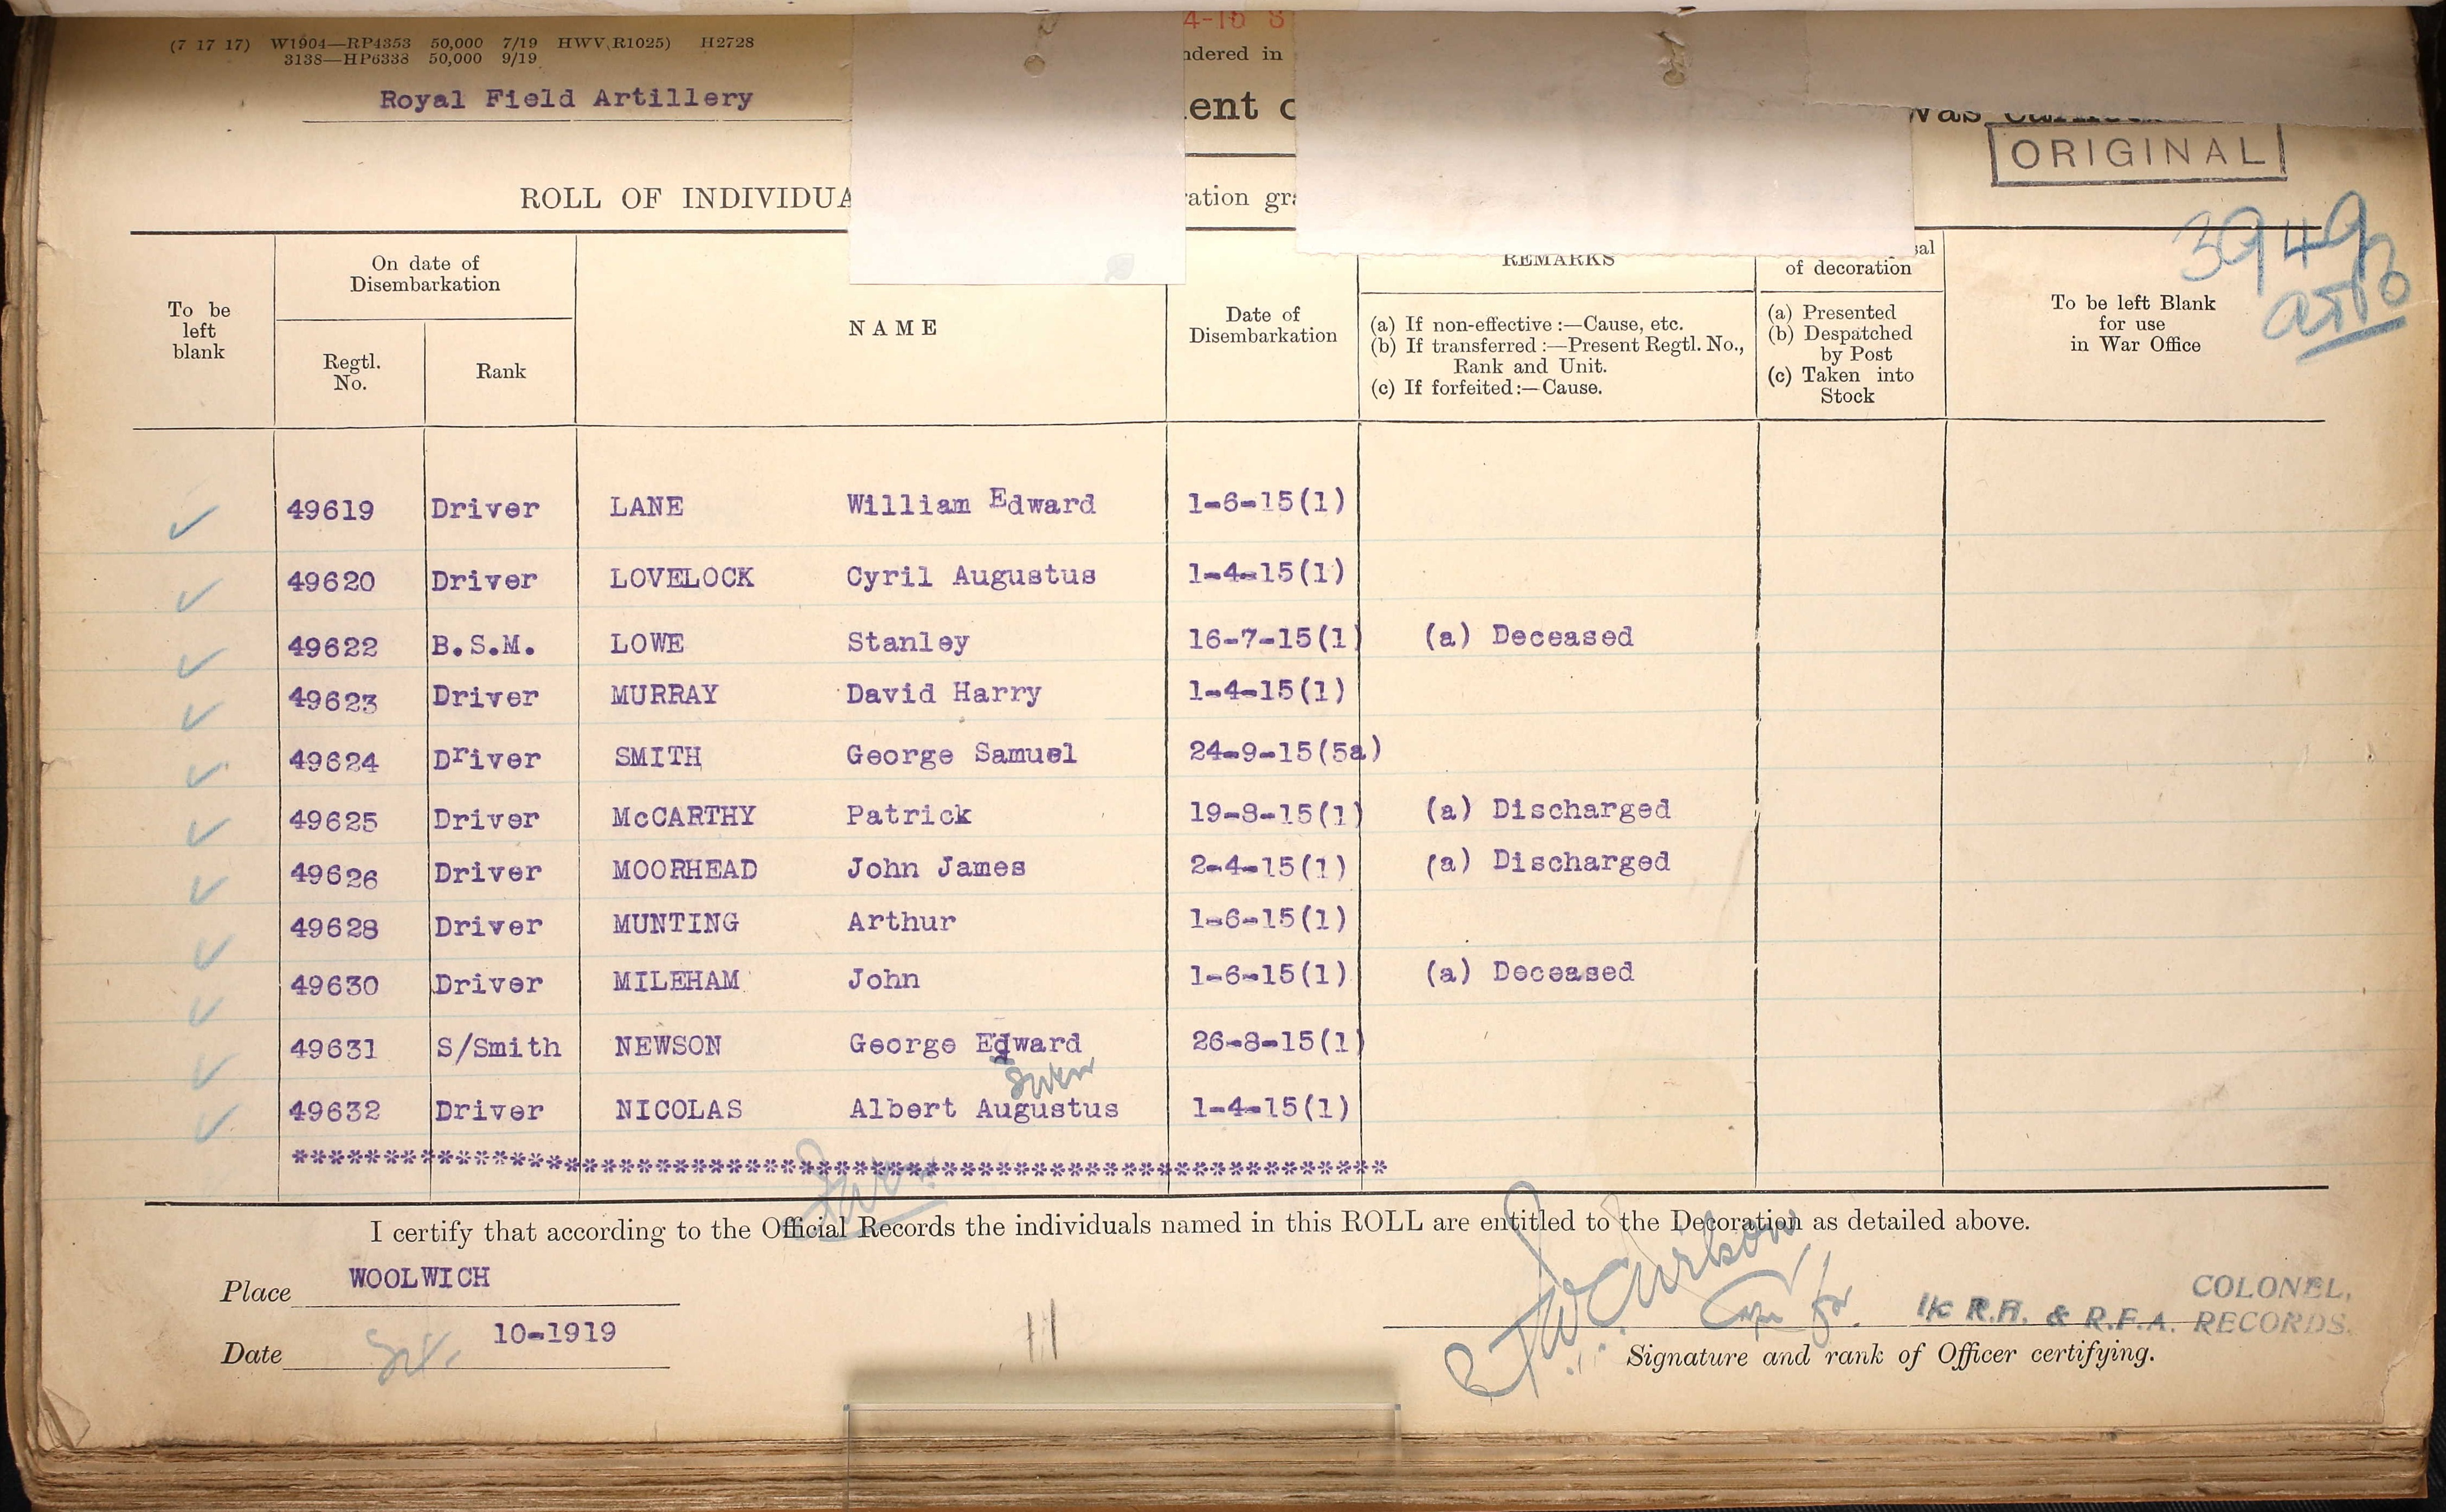 4-15 S
(7 17 17) W1904—RP4353 50,000 7/19 HWV(R1025) H2728
3138—HP6338 50,000 9/19
ndered in
Royal Field Artillery
ent o
was
ORIGINAL
ROLL OF INDIVIDUA ration gra
3949
To be left blank
On date of Disembarkation
Regtl. No.
Rank
NAME
Date of Disembarkation
REMARKS
(a) If non-effective :—Cause, etc.
(b) If transferred :—Present Regtl. No., Rank and Unit.
(c) If forfeited :—Cause.
sal
of decoration
(a) Presented
(b) Despatched by Post
(c) Taken into Stock
To be left Blank for use in War Office
49619 Driver LANE William Edward 1-6-15(1)
49620 Driver LOVELOCK Cyril Augustus 1-4-15(1)
49622 B.S.M. LOWE Stanley 16-7-15(1) (a) Deceased
49623 Driver MURRAY David Harry 1-4-15(1)
49624 Driver SMITH George Samuel 24-9-15(5a)
49625 Driver McCARTHY Patrick 19-8-15(1) (a) Discharged
49626 Driver MOORHEAD John James 2-4-15(1) (a) Discharged
49628 Driver MUNTING Arthur 1-6-15(1)
49630 Driver MILEHAM John 1-6-15(1) (a) Deceased
49631 S/Smith NEWSON George Edward 26-8-15(1)
49632 Driver NICOLAS Albert Augustus 1-4-15(1)
I certify that according to the Official Records the individuals named in this ROLL are entitled to the Decoration as detailed above.
Place WOOLWICH
COLONEL,
I/c R.H. & R.F.A. RECORDS.
Date 10-1919
11
Signature and rank of Officer certifying.